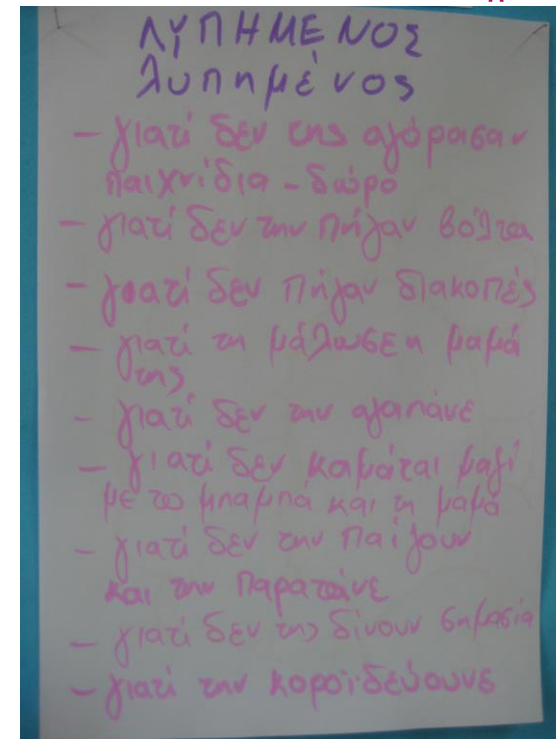 ΛΥΠΗΜΕΝΟΣ
λυπημένος
- γιατί δεν της αγόρασαν
παιχνίδια - δώρο
- γιατί δεν την πήγαν βόλτα
- γιατί δεν πήγαν διακοπές
- γιατί τη μάλωσε η μαμά
της
- γιατί δεν την αγαπάνε
- γιατί δεν κοιμάται μαζί
με το μπαμπά και τη μαμά
- γιατί δεν την παίζουν
και την παρατάνε
- γιατί δεν της δίνουν σημασία
- γιατί την κοροϊδεύουνε